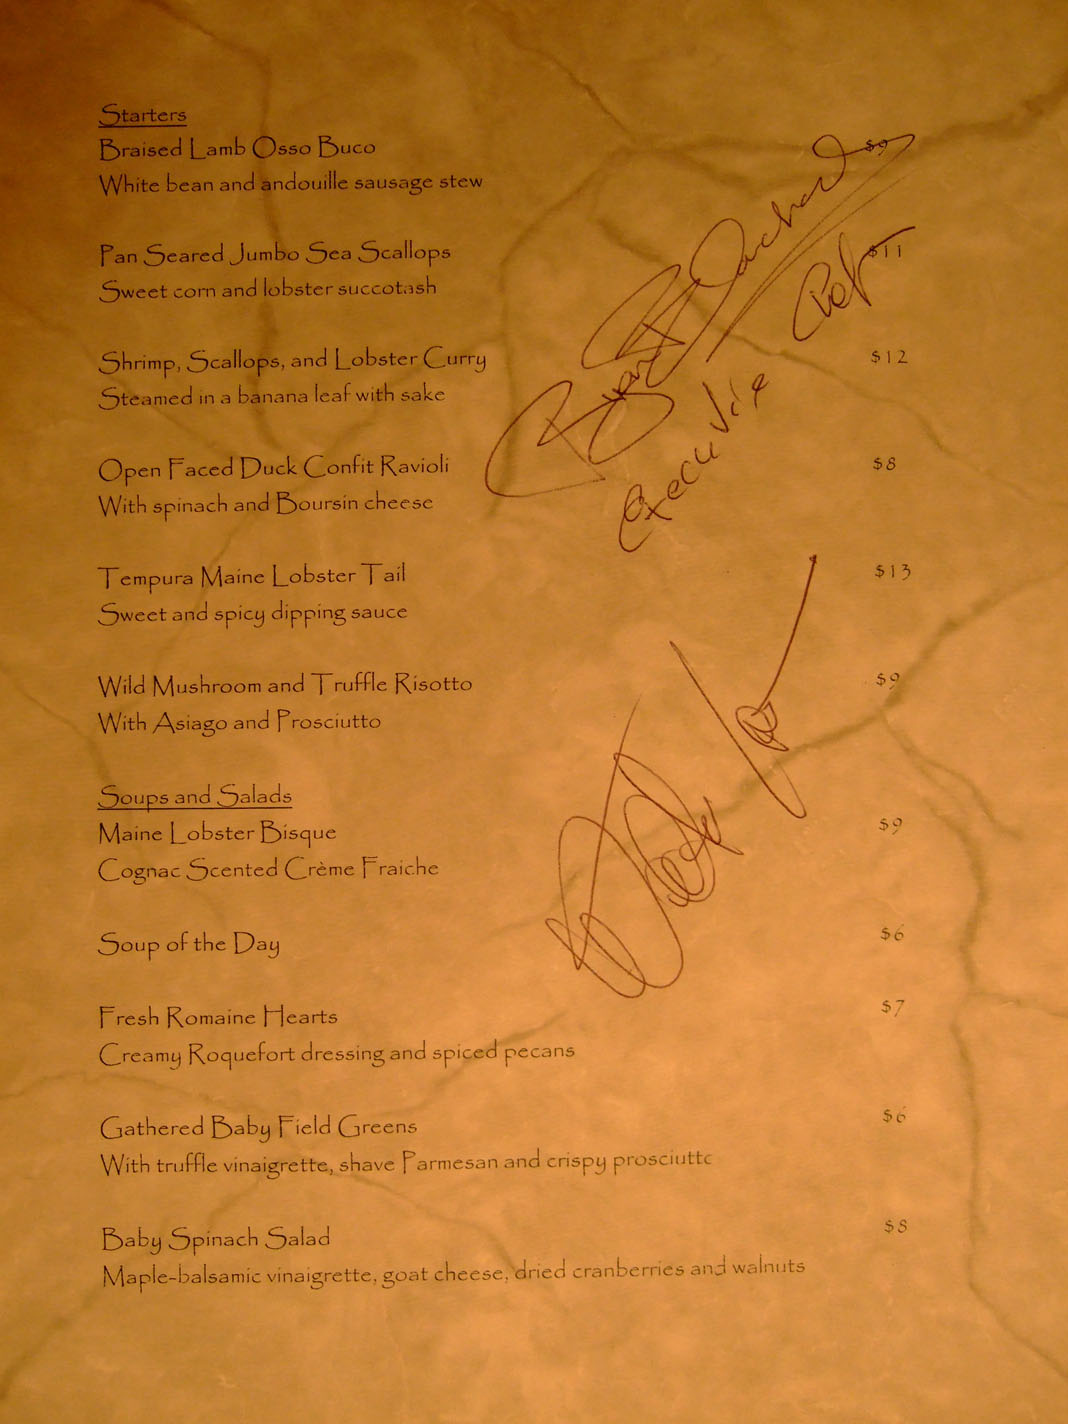 Starters
Braised Lamb Osso Buco $9
White bean and andouille sausage stew
Pan Seared Jumbo Sea Scallops $11
Sweet corn and lobster succotash
Shrimp, Scallops, and Lobster Curry $12
Steamed in a banana leaf with sake
Open Faced Duck Confit Ravioli $8
With spinach and Boursin cheese
Tempura Maine Lobster Tail $13
Sweet and spicy dipping sauce
Wild Mushroom and Truffle Risotto $9
With Asiago and Prosciutto
Soups and Salads
Maine Lobster Bisque $9
Cognac Scented Crème Fraiche
Soup of the Day $6
Fresh Romaine Hearts $7
Creamy Roquefort dressing and spiced pecans
Gathered Baby Field Greens $6
With truffle vinaigrette, shave Parmesan and crispy prosciutto
Baby Spinach Salad $8
Maple-balsamic vinaigrette, goat cheese, dried cranberries and walnuts
Executive Chef